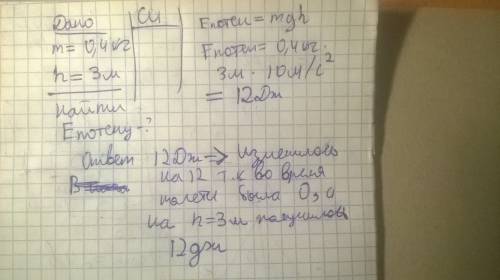 Дано
СИ
m = 0,4 кг
h = 3м
Найти
Епотенц-?
Епотен = mgh
Епотен = 0,4кг ·
3м · 10м/с²
= 12Дж
Ответ 12Дж → Изменилась
на 12 т.к во время
полета была 0, а
на h=3м получилось
12дж